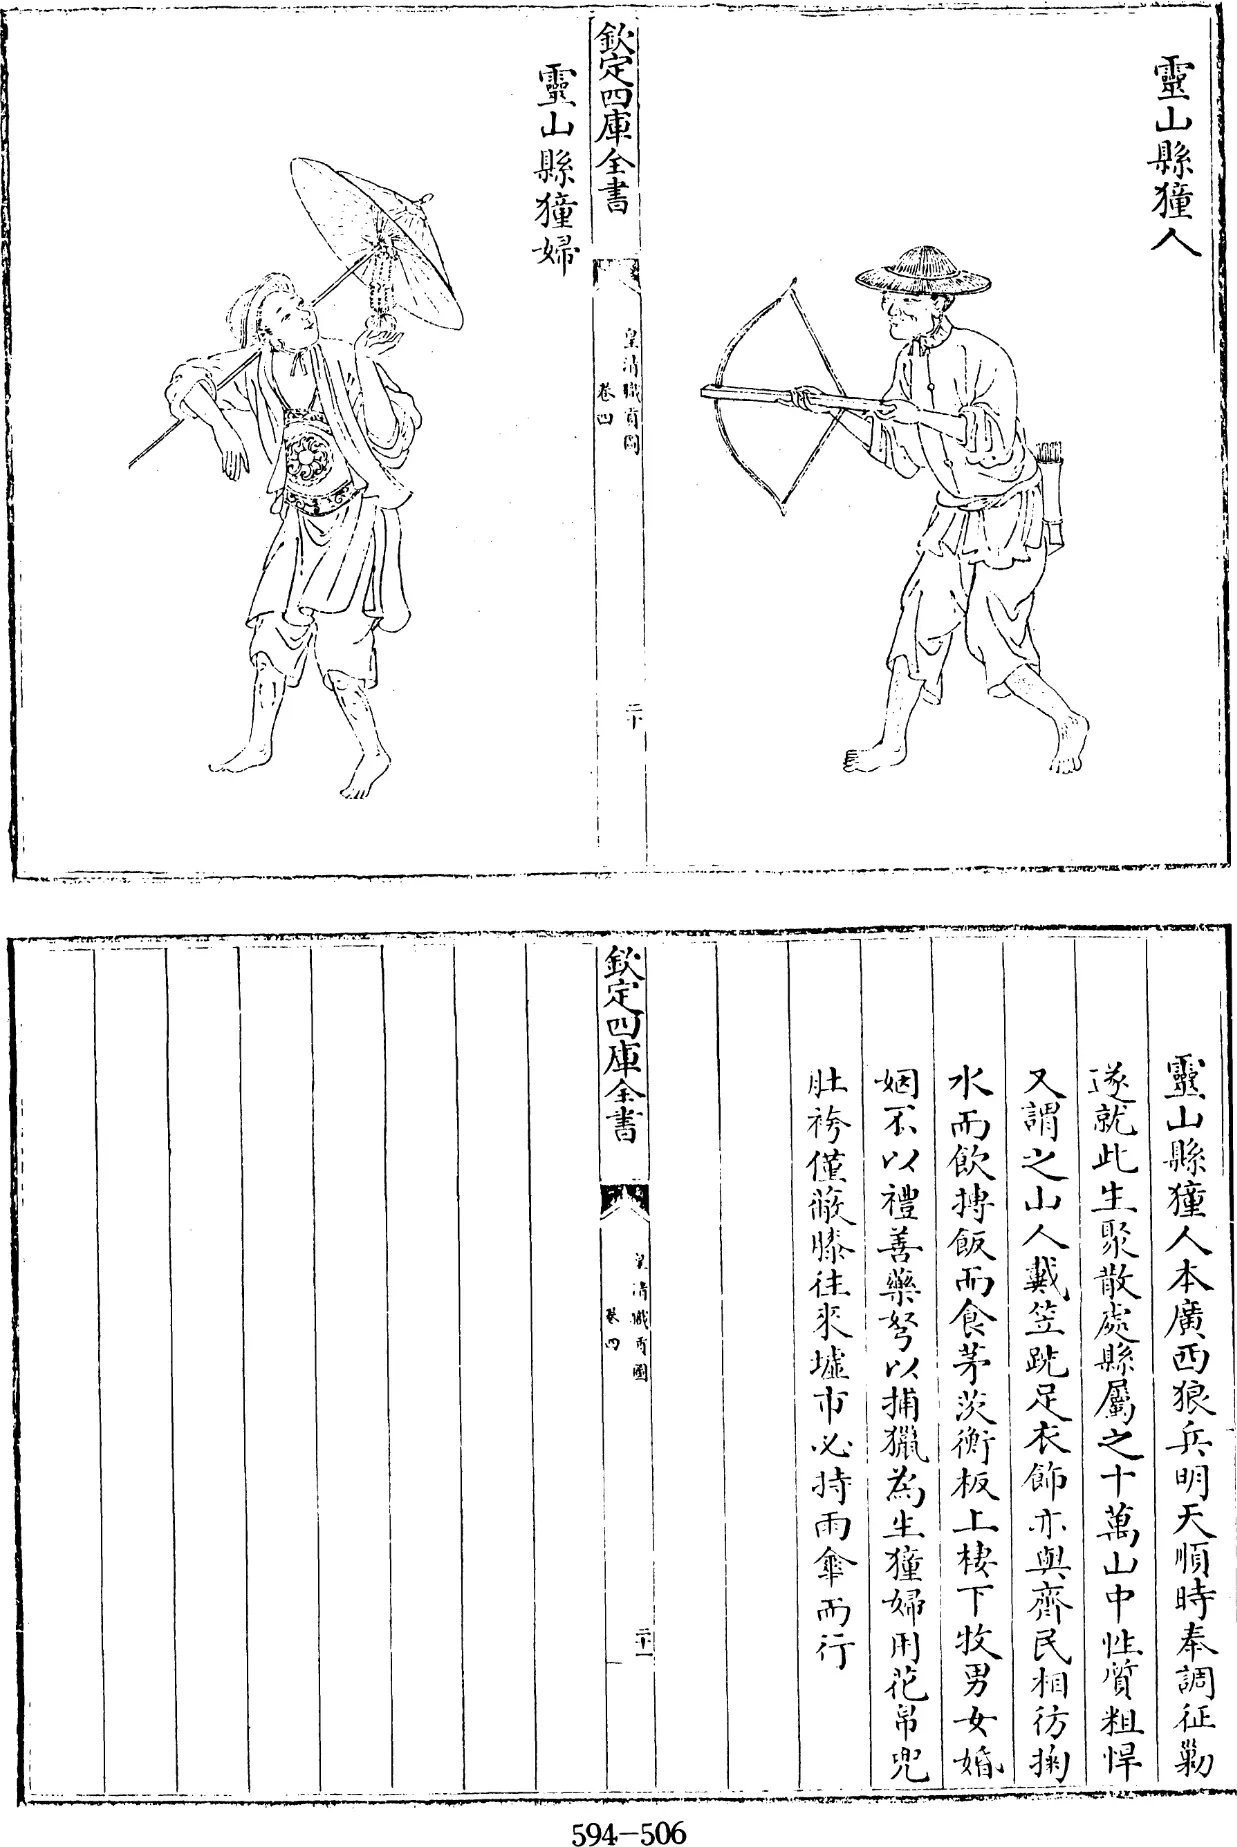 靈山縣獞人
欽定四庫全書
皇清職貢圖
卷四
二十
靈山縣獞婦
靈山縣獞人本廣西狼兵明天順時奉調征勦
遂就此生聚散處縣屬之十萬山中性質粗悍
又謂之山人戴笠跣足衣飾亦與齊民相彷掬
水而飲摶飯而食茅茨衡板上棲下牧男女婚
姻不以禮善藥弩以捕獵為生獞婦用花帛兜
肚袴僅蔽膝往來墟市必持雨傘而行
欽定四庫全書
皇清職貢圖
卷四
二十一
594-506